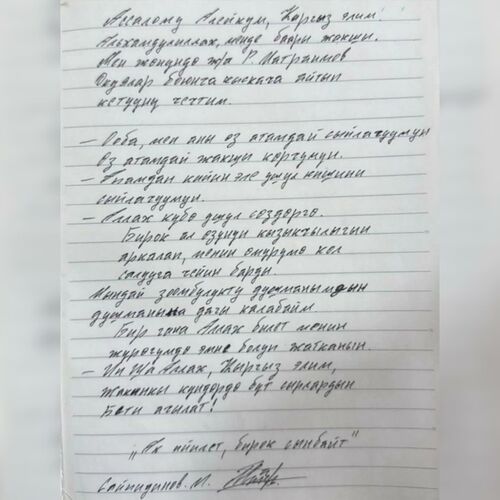 Ассалому Алейкум, Кыргыз элим!
Альхамдулиллах, менде баары жакшы.
Мен жөнүндө ж/а Р. Матраимов
Окуялар боюнча кыскача айтып
кетүүнү чечтим.
- Ооба, мен аны өз атамдай сыйлачуумун
Өз атамдай жакшы көрчүмүн.
- Атамдан кийин эле ушул кишини
сыйлачуумун.
- Аллах күбө ушул сөздөргө.
Бирок ал өзүнүн кызыкчылыгын
аркалап, менин өмүрүмө кол
салууга чейин барды.
Мындай зомбулукту душманымдын
душманына дагы каалабайм.
Бир гана Аллах билет менин
жүрөгүмдө эмне болуп жатканын.
- Ин Ша Аллах, Кыргыз элим,
жакынкы күндөрдө бүт сырлардын
бети ачылат!
"Ак ийилет, бирок сынбайт"
Сайпидинов. М.